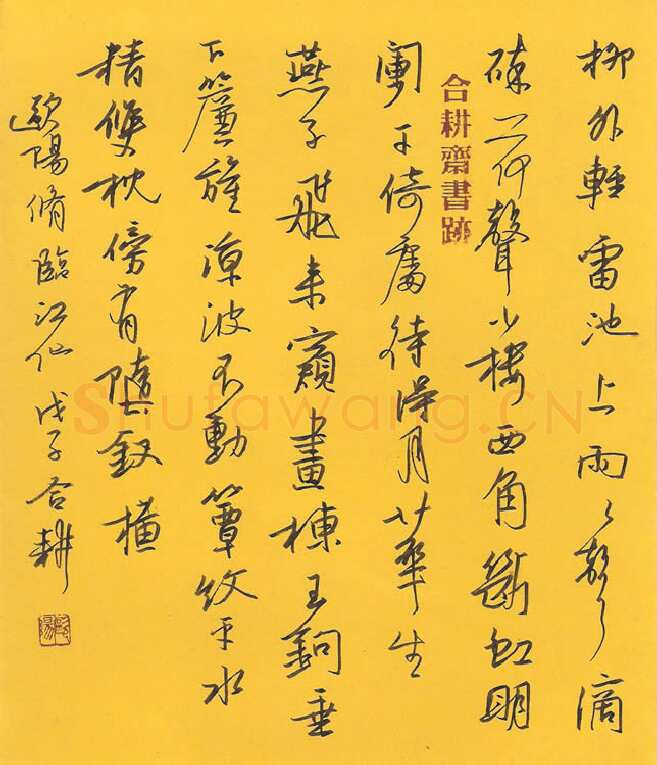 柳外輕雷池上雨〻聲滴
碎荷聲小樓西角斷虹明
合耕齋書跡
闌干倚處待得月華生
燕子飛來窺畫棟玉鉤垂
下簾旌涼波不動簟紋平水
精雙枕傍有墮釵橫
歐陽脩臨江仙 戊子合耕
Shufawang.CN